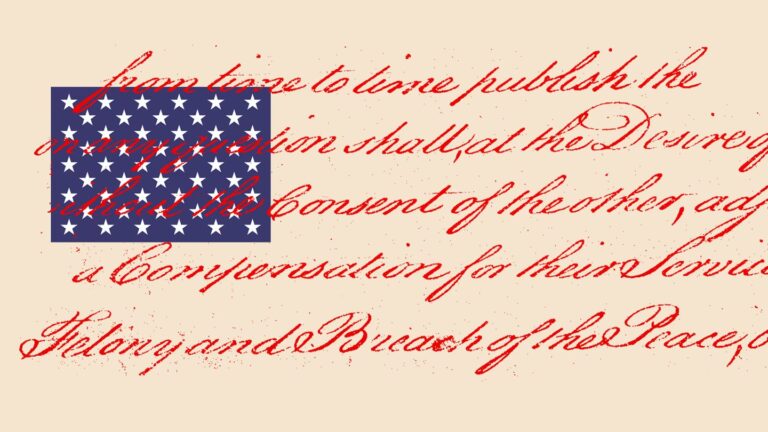 from time to time publish the
on any question shall, at the Desire of
without the Consent of the other, adj
a Compensation for their Servic
Felony and Breach of the Peace, o